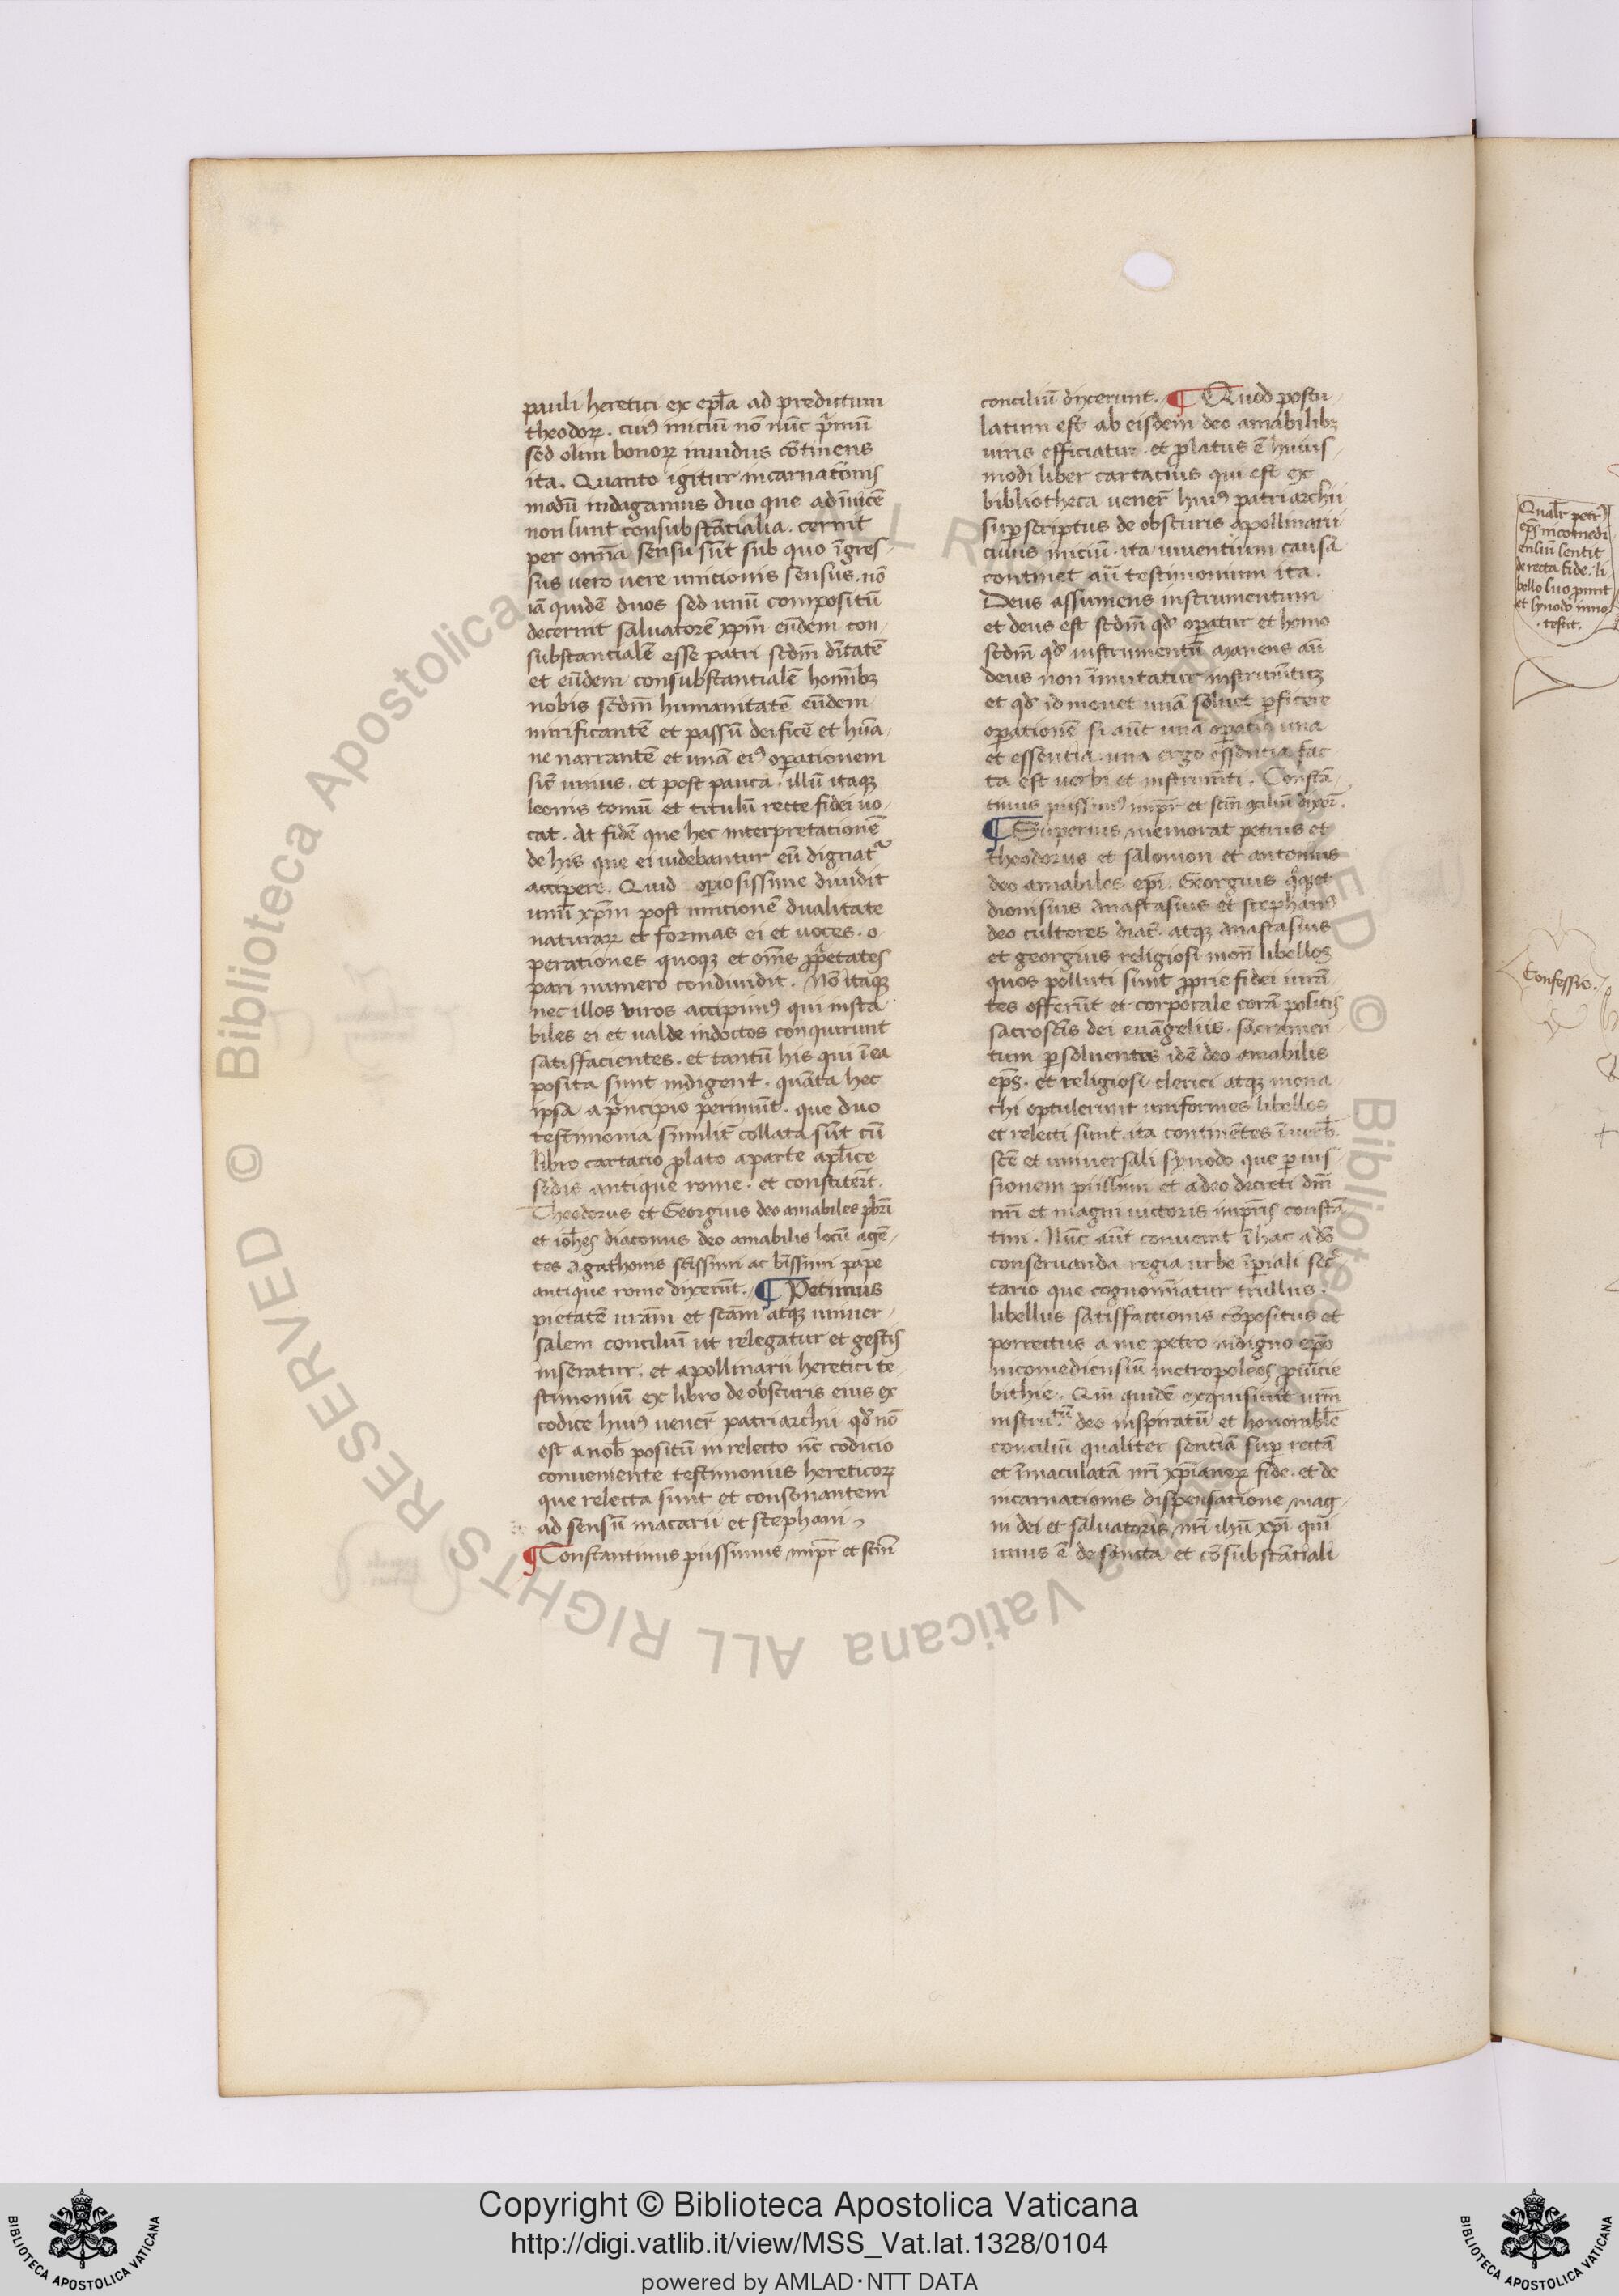 pauli heretici ex ep̄la ad predictum
theodoꝝ. cuiꝰ iniciū nō nūc p̄imū
sed olim bonoꝝ inuidus cōtinens
ita. Quanto igitur incarnatōnis
modū indagamus duo que adīuicē
non sunt consubstātialia. cernit
per om̄ia sensu sūt sub quo īgres-
sus uero uere unicionis sensus. nō
iā quidē duos sed unū compositū
decernit saluatorē xp̄m eūdem con-
substantialē esse patri scdm̄ dītatē
et eūdem consubstantialē homībꝫ
nobis scdm̄ humanitatē eūdem
mirificantē et passū deificē et huā-
ne narrantē et unā eiꝰ operationem
sic̄ unius. et post pauca. illū itaqꝫ
leonis tomū et titulū recte fidei uo-
cat. At fidē que hec interpretationē
de his que ei uidebantur eū dignatᷣ
accipere. Quid opiosissime diuidit
unū xp̄m post unicionē dualitate
naturaꝝ et formas ei et uoces. o-
perationes quoqꝫ et om̄s p̄pietates
pari numero condiuidit. Nō itaqꝫ
nec illos viros accipimꝰ qui insta-
biles ei et ualde indoctos conqurunt
satisfacientes. et tantū his qui ī ea
posita sunt indigent. quāta hec
ipsa a p̄ncipio perimūt. que duo
testimonia similit̄ collata sūt cū
libro cartacio plato a parte ap̄lice
sedis antique rome. et constiter̄t.
Theodorus et Georgius deo amabiles pb̄ri
et ioh̄es diaconus deo amabilis locū agē-
tes Agathonis sc̄issimi ac b̄issimi pape
antique rome dixerūt. ¶ Petimus
pietatē urām et sc̄am atqꝫ uniuer-
salem conciliū ut relegatur et gestis
inseratur. et apollinarii heretici te-
stimoniū ex libro de obscuris eius ex
codice huiꝰ uener̄ patriarchii qd̄ nō
est a nob̄ positū in relecto nc̄ codicio
conueniente testimoniis hereticoꝝ
que relecta sunt et consonantem
ad sensū macarii et stephani
¶ Constantinus piissimus imp̄r et sc̄m
conciliū dixerunt. ¶ Quod postu-
latum est ab eisdem deo amabilibꝫ
uiris efficiatur. et platus ē huius-
modi liber cartacius qui est ex
bibliotheca uener̄ huiꝰ patriarchii
suꝑscriptus de obscuris apollinarii
cuius iniciū. ita uiuentium causā
continet aūt testimonium ita.
Deus assumens instrumentum
et deus est scdm̄ qd̄ operatur et homo
scdm̄ qd̄ instrumentū Manens aūt
deus non īmutatur instrumētūꝫ
et qd̄ id mouet unā soluet ꝑficere
operationē si aūt una operatio una
et essentia. una ergo essentia fac-
ta est uerbi et instrum̄ti. Constā-
tinus piissimꝰ imp̄r et sc̄m 9ciliū dixer̄.
¶ Superius memorat petrus et
theodorus et salomon et antonius
deo amabiles ep̄i. Georgius qͦqꝫ et
dionisius Anastasius et stephanꝰ
deo cultores diac̄. atqꝫ Anastasius
et georgius religiosi mon̄ libellos
quos polliciti sunt ꝓprie fidei iurā-
tes offerūt et corporale corā positis
sacrosc̄is dei euāgeliis. sacramen-
tum ꝑsoluentes idē deo amabilis
ep̄s. et religiosi clerici atqꝫ mona-
chi optulerunt uniformes libellos
et relecti sunt. ita continētes ī uerb̄.
sc̄e et uniuersali synodo que ꝑ ius-
sionem piissimi et a deo decreti dn̄i
nr̄i et magni uictoris impr̄is constā-
tini. Nūc aūt conuenit ī hac a dō
conseruanda regia urbe īperiali sec̄-
tario que cognomīatur trullus.
libellus satisfactionis cōpositus et
porrectus a me petro indigno ep̄o
nicomediensiū metropoleos ꝓuīcie
bithie. Qm̄ quidē exquisiuit ur̄m
instruc̄tū deo inspiratū et honorabl̄e
conciliū qualiter sentiā suꝑ rectā
et īmaculatā nr̄i xp̄ianoꝝ fide. et de
incarnationis dispensatione mag-
ni dei et saluatoris nr̄i ihū xp̄i qui
unus ē de sancta et cōsubstātiali
Qualr̄ petrꝰ
ep̄s nicomedi-
ensiū sentit
de recta fide. li-
bello suo
et synodo
Confessio.
Copyright © Biblioteca Apostolica Vaticana
http://digi.vatlib.it/view/MSS_Vat.lat.1328/0104
powered by AMLAD·NTT DATA
BIBLIOTECA APOSTOLICA VATICANA
BIBLIOTECA APOSTOLICA VATICANA
© Biblioteca Apostolica Vaticana ALL RIGHTS RESERVED